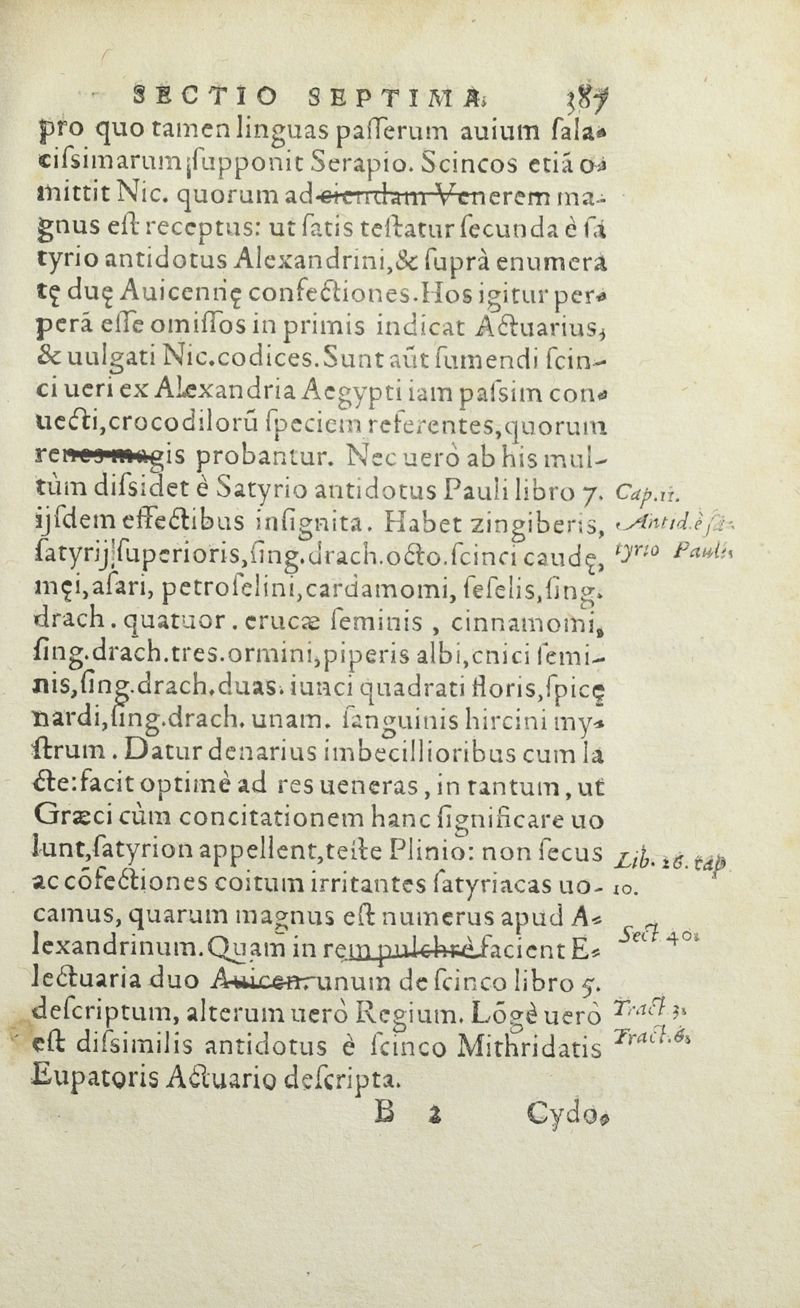 SECTIO SEPTIMA. 387
pro quo tamen linguas paſſerum auium ſala-
ciſsimarum, ſupponit Serapio. Scincos etiã o-
mittit Nic. quorum ad Venerem ma-
gnus eſt receptus: ut ſatis teſtatur ſecunda è ſa
tyrio antidotus Alexandrini,& ſuprà enumera
tę duę Auicennę confectiones. Hos igitur per-
perã eſſe omiſſos in primis indicat Actuarius,
& uulgati Nic. codices. Sunt aũt ſumendi ſcin-
ci ueri ex Alexandria Aegypti iam paſsim con-
uecti, crocodilorũ ſpeciem referentes, quorum
renes magis probantur. Nec uerò ab his mul-
tùm diſsidet è Satyrio antidotus Pauli libro 7. Cap. 11.
ijſdem effectibus inſignita. Habet zingiberis, Antid. è ſa-
ſatyrij ſuperioris, ſing. drach. octo. ſcinci caudę, tyrio Pauli.
męi, aſari, petroſelini, cardamomi, ſeſelis, ſing.
drach. quatuor. erucæ ſeminis, cinnamomi,
ſing. drach. tres. ormini, piperis albi, cnici ſemi-
nis, ſing. drach. duas. iunci quadrati floris, ſpicę
nardi, ſing. drach. unam. ſanguinis hircini my-
ſtrum. Datur denarius imbecillioribus cum la
cte: facit optimè ad res ueneras, in tantum, ut
Græci cùm concitationem hanc ſignificare uo
lunt, ſatyrion appellent, teſte Plinio: non ſecus Lib. 26. cap
ac cõfectiones coitum irritantes ſatyriacas uo- 10.
camus, quarum magnus eſt numerus apud A-
lexandrinum. Quam in rem pulchrè facient E- Sect 40.
lectuaria duo Auicen. unum de ſcinco libro 5.
deſcriptum, alterum uerò Regium. Lõgè uerò Tract. 3.
eſt diſsimilis antidotus è ſcinco Mithridatis Tract. 6.
Eupatoris Actuario deſcripta.
B 2 Cydo-